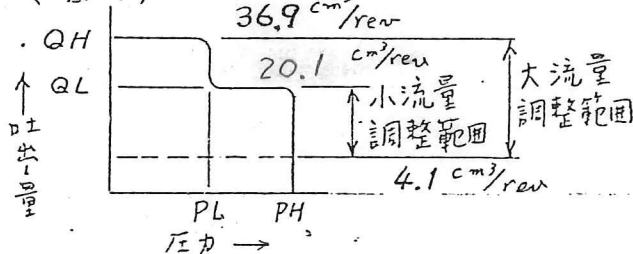 36.9 cm³/rev
QH
20.1 cm³/rev
QL
大流量
調整範囲
小流量
調整範囲
吐出量
4.1 cm³/rev
PL PH
圧力 →